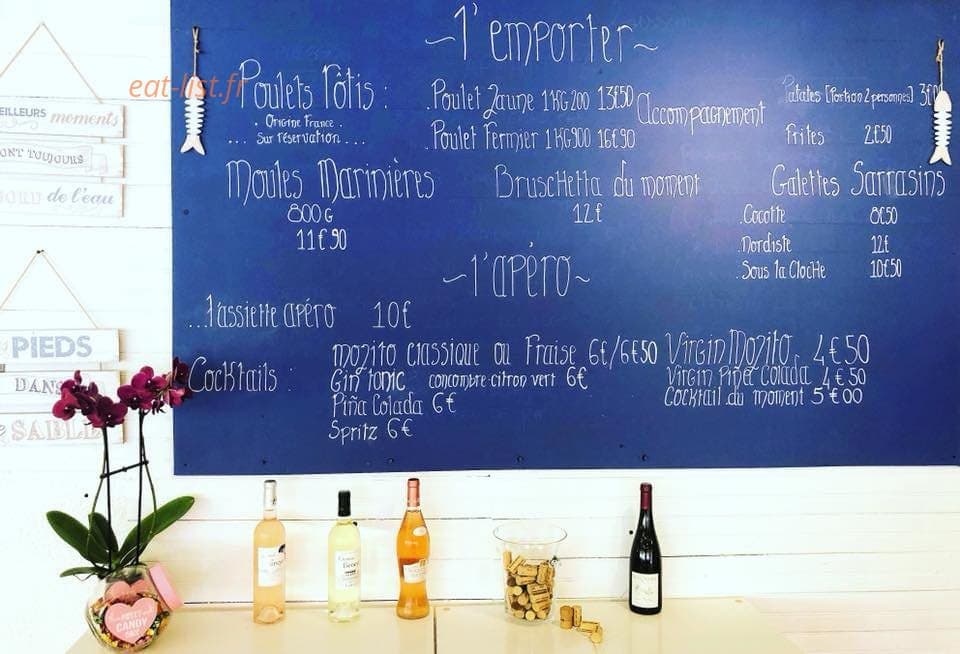 ~ l'emporter ~
eat-list.fr
Poulets Rôtis :
. Origine France .
... Sur réservation ...
. Poulet Jaune 1KG200 13€50
. Poulet Fermier 1KG900 16€90
Accompagnement
Patates (Portion 2 personnes)
Frites 2€50
Moules Marinières
800G
11€90
Bruschetta du moment
12€
Galettes Sarrasins
. Cocotte 8€50
. Nordiste 12€
. Sous la Cloche 10€50
~ l'apéro ~
...l'assiette apéro 10€
Cocktails :
Mojito classique ou Fraise 6€/6€50
Gin tonic concombre-citron vert 6€
Piña Colada 6€
Spritz 6€
Virgin Mojito 4€50
Virgin Piña Colada 4€50
Cocktail du moment 5€00
EILLEURS moments
ONT TOUJOURS
BORD de l'eau
PIEDS
DANS
SABLE
CANDY